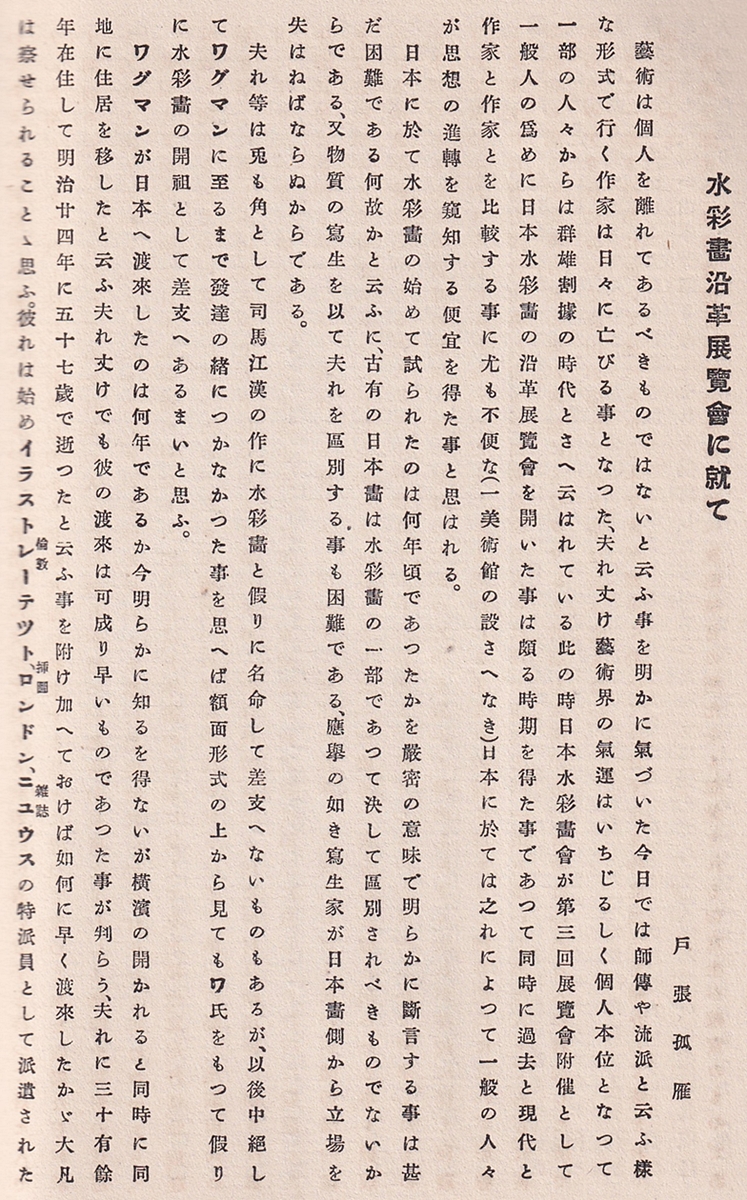 水彩畫沿革展覽會に就て
戶張孤雁
藝術は個人を離れてあるべきものではないと云ふ事を明かに氣づいた今日では師傳や流派と云ふ樣
な形式で行く作家は日々に亡びる事となつた、夫れ丈け藝術界の氣運はいちじるしく個人本位となつて
一部の人々からは群雄割據の時代とさへ云はれている此の時日本水彩畫會が第三回展覽會附催として
一般人の爲めに日本水彩畫の沿革展覽會を開いた事は頗る時期を得た事であつて同時に過去と現代と
作家と作家とを比較する事に尤も不便な(一美術館の設さへなき)日本に於ては之れによつて一般の人々
が思想の進轉を窺知する便宜を得た事と思はれる。
日本に於て水彩畫の始めて試られたのは何年頃であつたかを嚴密の意味で明らかに斷言する事は甚
だ困難である何故かと云ふに、古有の日本畫は水彩畫の一部であつて決して區別されべきものでないか
らである、又物質の寫生を以て夫れを區別する事も困難である、應擧の如き寫生家が日本畫側から立場を
失はねばならぬからである。
夫れ等は兎も角として司馬江漢の作に水彩畵と假りに名命して差支へないものもあるが、以後中絕し
てワグマンに至るまで發達の緖につかなかつた事を思へば額面形式の上から見てもワ氏をもつて假り
に水彩畫の開祖として差支へあるまいと思ふ。
ワグマンが日本へ渡來したのは何年であるか今明らかに知るを得ないが橫濱の開かれると同時に同
地に住居を移したと云ふ夫れ丈けでも彼の渡來は可成り早いものであつた事が判らう、夫れに三十有餘
年在住して明治廿四年に五十七歲で逝つたと云ふ事を附け加へておけば如何に早く渡來したかゞ大凡
は察せられることゝ思ふ。彼れは始めイラストレーテツト、ロンドン、ニユウスの特派員として派遣された
倫敦
挿畫
雜誌